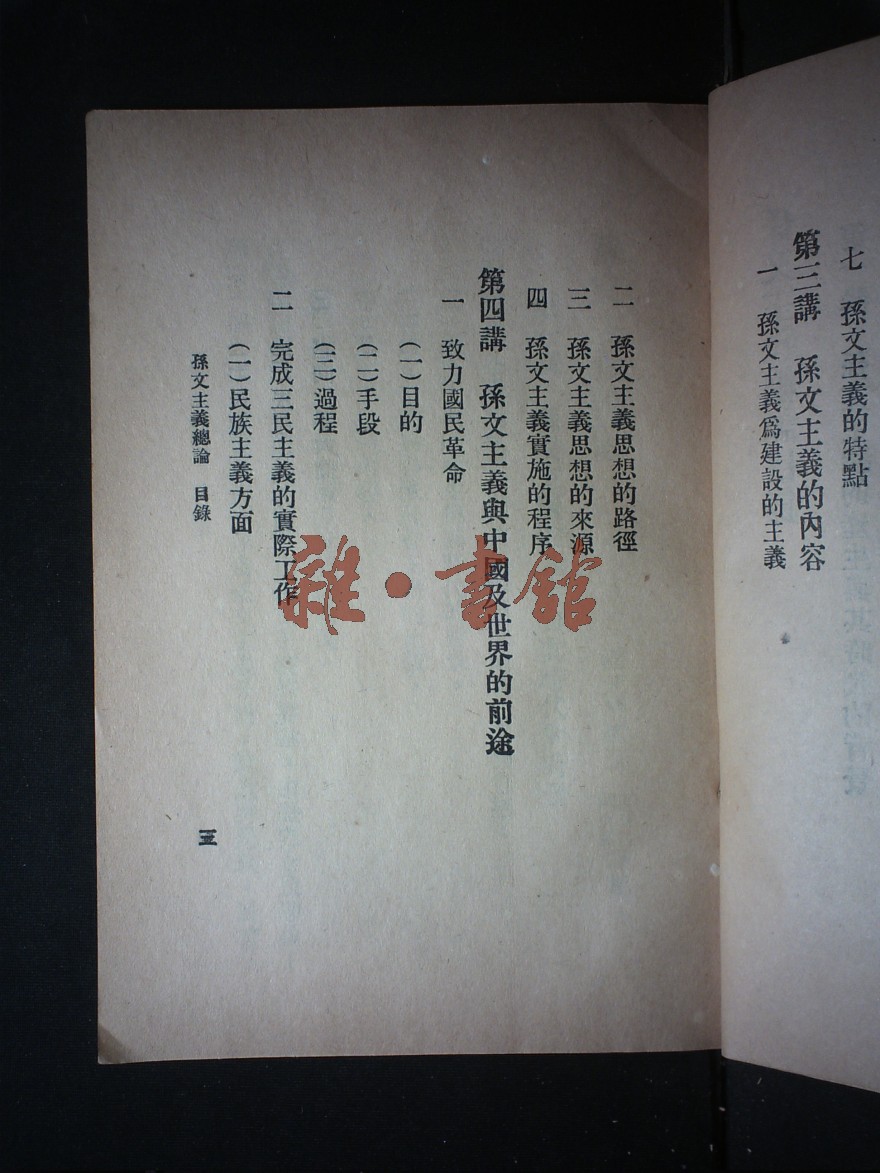 七　孫文主義的特點
第三講　孫文主義的內容
一　孫文主義爲建設的主義
二　孫文主義思想的路徑
三　孫文主義思想的來源
四　孫文主義實施的程序
第四講　孫文主義與中國及世界的前途
一　致力國民革命
(一)目的
(二)手段
(三)過程
二　完成三民主義的實際工作
(一)民族主義方面
孫文主義總論　目錄
三
雜·書館